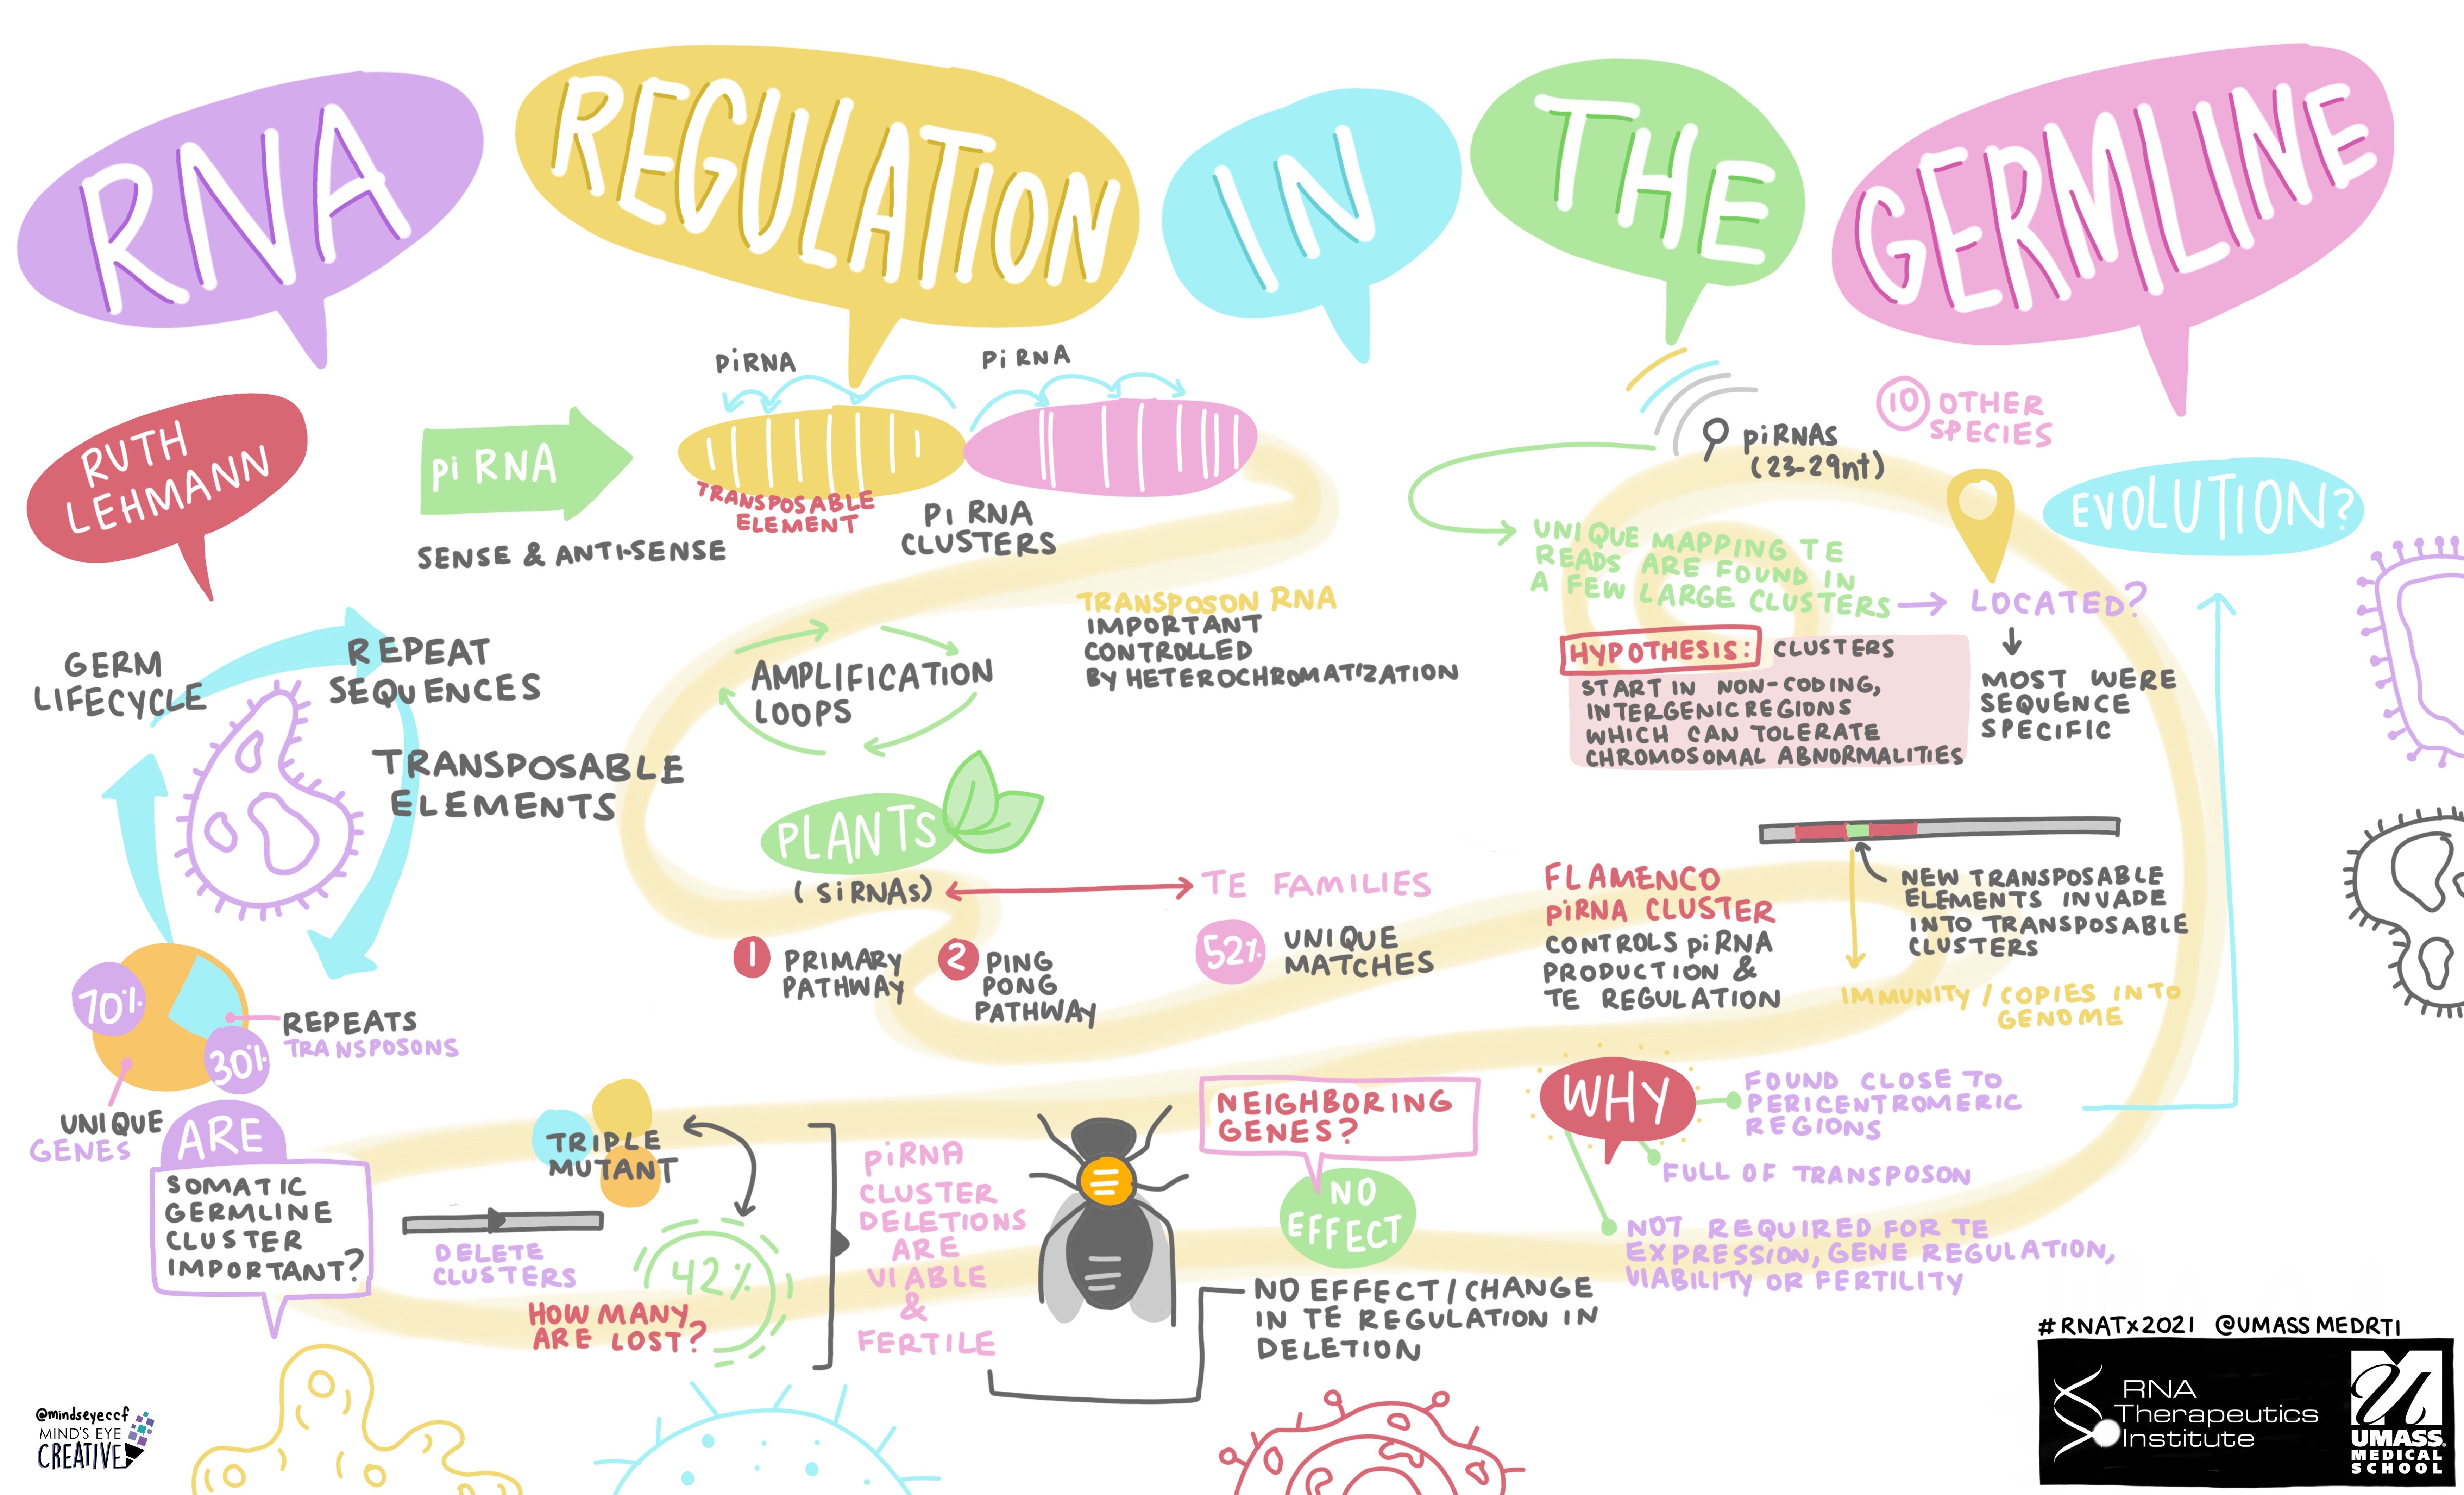 RNA
REGULATION
IN
THE
GERMLINE
RUTH
LEHMANN
GERM
LIFECYCLE
REPEAT
SEQUENCES
TRANSPOSABLE
ELEMENTS
70%
30%
REPEATS
TRANSPOSONS
UNIQUE
GENES
pi RNA
SENSE & ANTI-SENSE
PiRNA
Pi RNA
TRANSPOSABLE
ELEMENT
Pi RNA
CLUSTERS
AMPLIFICATION
LOOPS
TRANSPOSON RNA
IMPORTANT
CONTROLLED
BY HETEROCHROMATIZATION
PLANTS
(SiRNAs)
TE FAMILIES
1 PRIMARY
PATHWAY
2 PING
PONG
PATHWAY
52% UNIQUE
MATCHES
piRNAs
(23-29nt)
10 OTHER
SPECIES
EVOLUTION?
UNIQUE MAPPING TE
READS ARE FOUND IN
A FEW LARGE CLUSTERS
LOCATED?
MOST WERE
SEQUENCE
SPECIFIC
HYPOTHESIS: CLUSTERS
START IN NON-CODING,
INTERGENIC REGIONS
WHICH CAN TOLERATE
CHROMOSOMAL ABNORMALITIES
FLAMENCO
PiRNA CLUSTER
CONTROLS piRNA
PRODUCTION &
TE REGULATION
NEW TRANSPOSABLE
ELEMENTS INVADE
INTO TRANSPOSABLE
CLUSTERS
IMMUNITY / COPIES INTO
GENOME
ARE
SOMATIC
GERMLINE
CLUSTER
IMPORTANT?
TRIPLE
MUTANT
DELETE
CLUSTERS
42%
HOW MANY
ARE LOST?
PiRNA
CLUSTER
DELETIONS
ARE
VIABLE
&
FERTILE
NEIGHBORING
GENES?
NO
EFFECT
NO EFFECT/CHANGE
IN TE REGULATION IN
DELETION
WHY
FOUND CLOSE TO
PERICENTROMERIC
REGIONS
FULL OF TRANSPOSON
NOT REQUIRED FOR TE
EXPRESSION, GENE REGULATION,
VIABILITY OR FERTILITY
#RNATx2021 @UMASSMEDRTI
RNA
Therapeutics
Institute
UMASS
MEDICAL
SCHOOL
@mindseyeccf
MIND'S EYE
CREATIVE